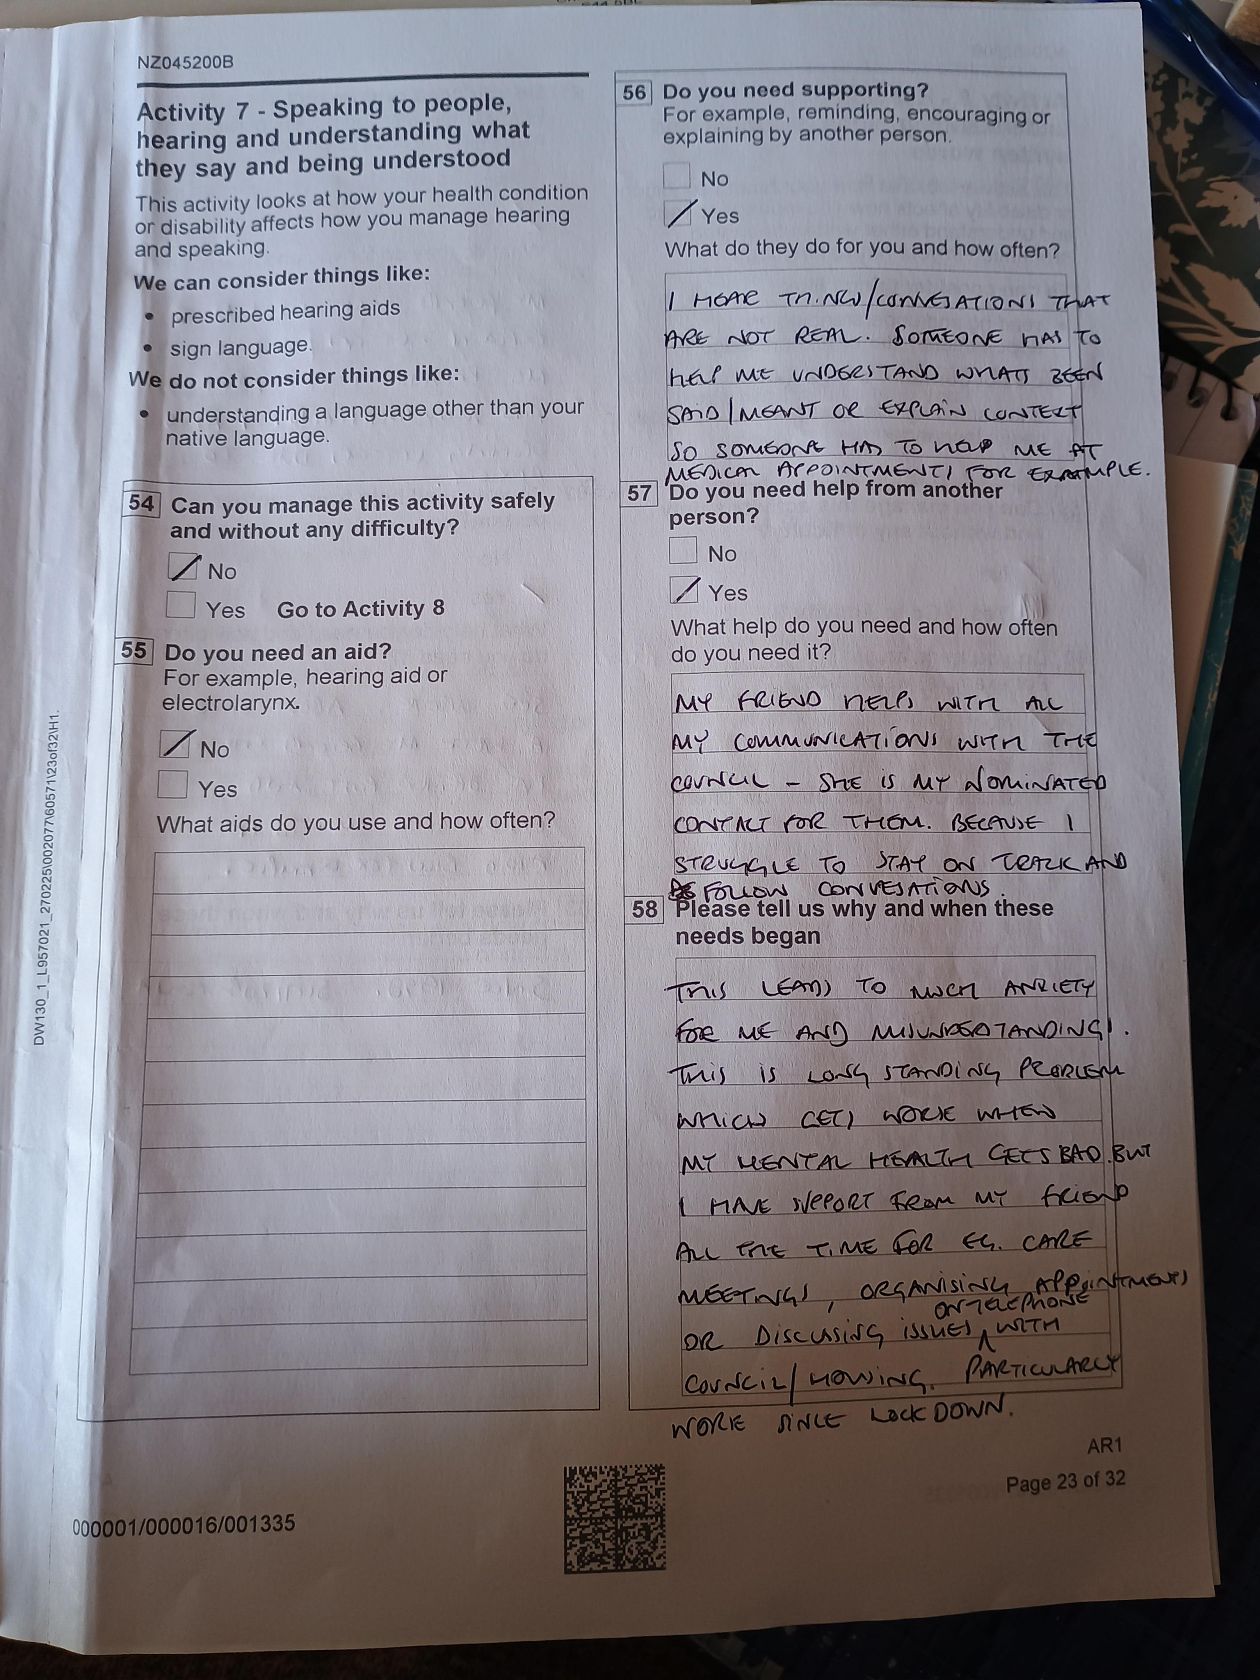 NZ045200B
Activity 7 - Speaking to people,
hearing and understanding what
they say and being understood
This activity looks at how your health condition
or disability affects how you manage hearing
and speaking.
We can consider things like:
• prescribed hearing aids
• sign language.
We do not consider things like:
• understanding a language other than your
native language.
54 Can you manage this activity safely
and without any difficulty?
No
Yes Go to Activity 8
55 Do you need an aid?
For example, hearing aid or
electrolarynx.
No
Yes
What aids do you use and how often?
56 Do you need supporting?
For example, reminding, encouraging or
explaining by another person.
No
Yes
What do they do for you and how often?
I HEAR THINGS/CONVESATIONS THAT
ARE NOT REAL. SOMEONE HAS TO
HELP ME UNDERSTAND WHATS BEEN
SAID/MEANT OR EXPLAIN CONTEXT
SO SOMEONE HAS TO HELP ME AT
MEDICAL APPOINTMENTS FOR EXAMPLE.
57 Do you need help from another
person?
No
Yes
What help do you need and how often
do you need it?
MY FRIEND HELPS WITH ALL
MY COMMUNICATIONS WITH THE
COUNCIL - SHE IS MY NOMINATED
CONTACT FOR THEM. BECAUSE I
STRUGGLE TO STAY ON TRACK AND
FOLLOW CONVESATIONS.
58 Please tell us why and when these
needs began
THIS LEADS TO MUCH ANXIETY
FOR ME AND MISUNDERSTANDINGS.
THIS IS LONG STANDING PROBLEM
WHICH GETS WORSE WHEN
MY MENTAL HEALTH GETS BAD. BUT
I HAVE SUPPORT FROM MY FRIEND
ALL THE TIME FOR EG. CARE
MEETINGS, ORGANISING APPOINTMENTS
ON TELEPHONE
OR DISCUSSING ISSUES WITH
COUNCIL/HOUSING. PARTICULARLY
WORSE SINCE LOCKDOWN.
AR1
Page 23 of 32
000001/000016/001335
DW130_1_L957021_270225\002077\60571\23of32\H1.